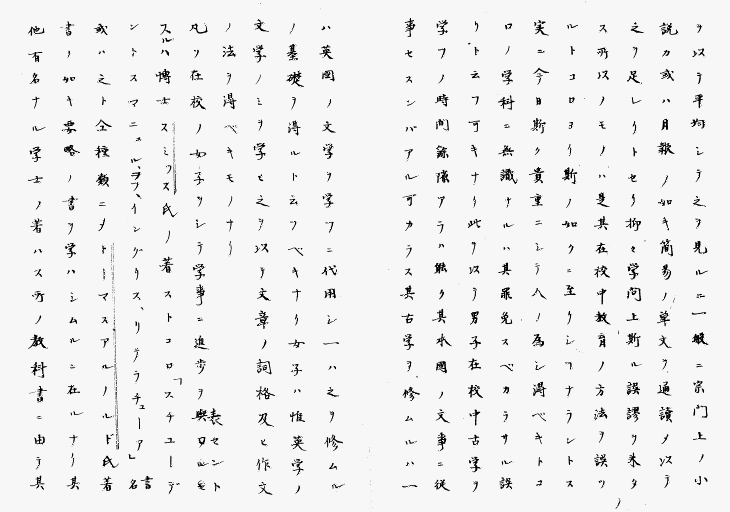 ヲ以テ平均シテ之ヲ見ルニ一般ニ宗門上ノ小
説カ或ハ月報ノ如キ簡易ノ単文ヲ通読メ以テ
之ヲ足レリトセリ抑々学問上斯ル誤謬ヲ来タ
ス所以ノモノハ是其在校中教育ノ方法ヲ誤ツ
ルトコロヨリ斯ノ如クニ至ラシフナラントス
実ニ今日斯ク貴重ニシテ人ノ為シ得ベキトコ
ロノ学科ニ無識ナルハ其罪免スベカラサル誤
リト云フ可キナリ此ヲ以テ男子在校中古学ヲ
学フノ時間餘隙アラハ能ク其本国ノ文事ニ従
事セスンバアル可カラス其古学ヲ修ムルハ一
ハ英国ノ文学ヲ学フニ代用シ一ハ之ヲ修ムル
ノ基礎ヲ得ルト云フベキナリ女子ハ惟英学ノ
文学ノミヲ学ヒ之ヲ以テ文章ノ詞格及ヒ作文
ノ法ヲ得ベキモノナリ
凡ソ在校ノ女子ヲシテ学事ニ進歩ヲ表セント
スルハ博士スミツス氏ノ著ストコロ「スチューデ
ントスマニュル、ヲブ、イングリス、リテラチューア」書名
或ハ之ト全種類ニメトーマスアルノルド氏著
書ノ如キ要略ノ書ヲ学ハシムルニ在ルナリ其
他有名ナル学士ノ著ハス所ノ教科書ニ由テ其